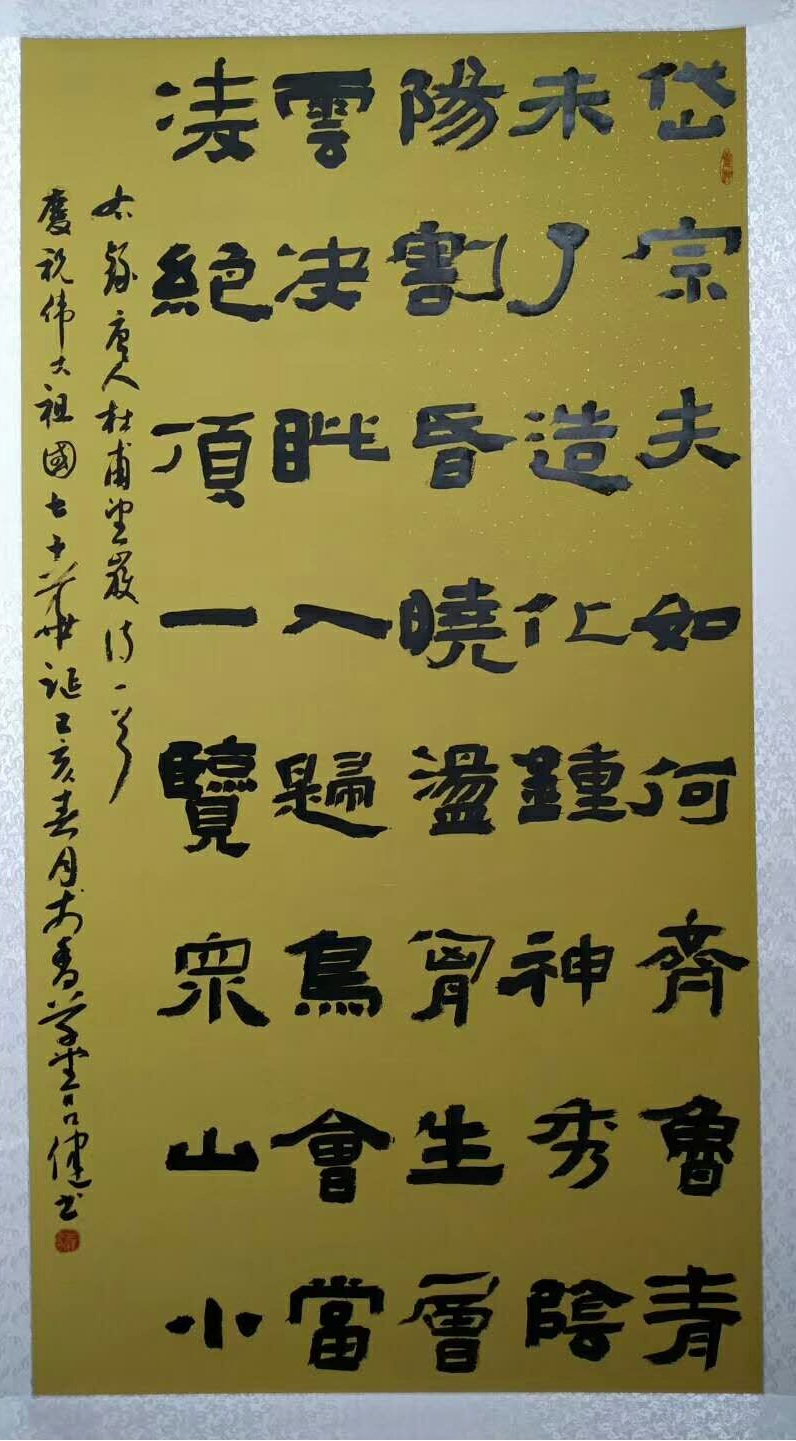 岱宗夫如何齊魯青
未了造化鍾神秀陰
陽割昏曉盪胷生層
雲决眦入歸鳥會當
凌絕頂一覽眾山小
右錄唐人杜甫望嶽诗一首
慶祝伟大祖國七十華诞己亥春月於香草堂吕健书